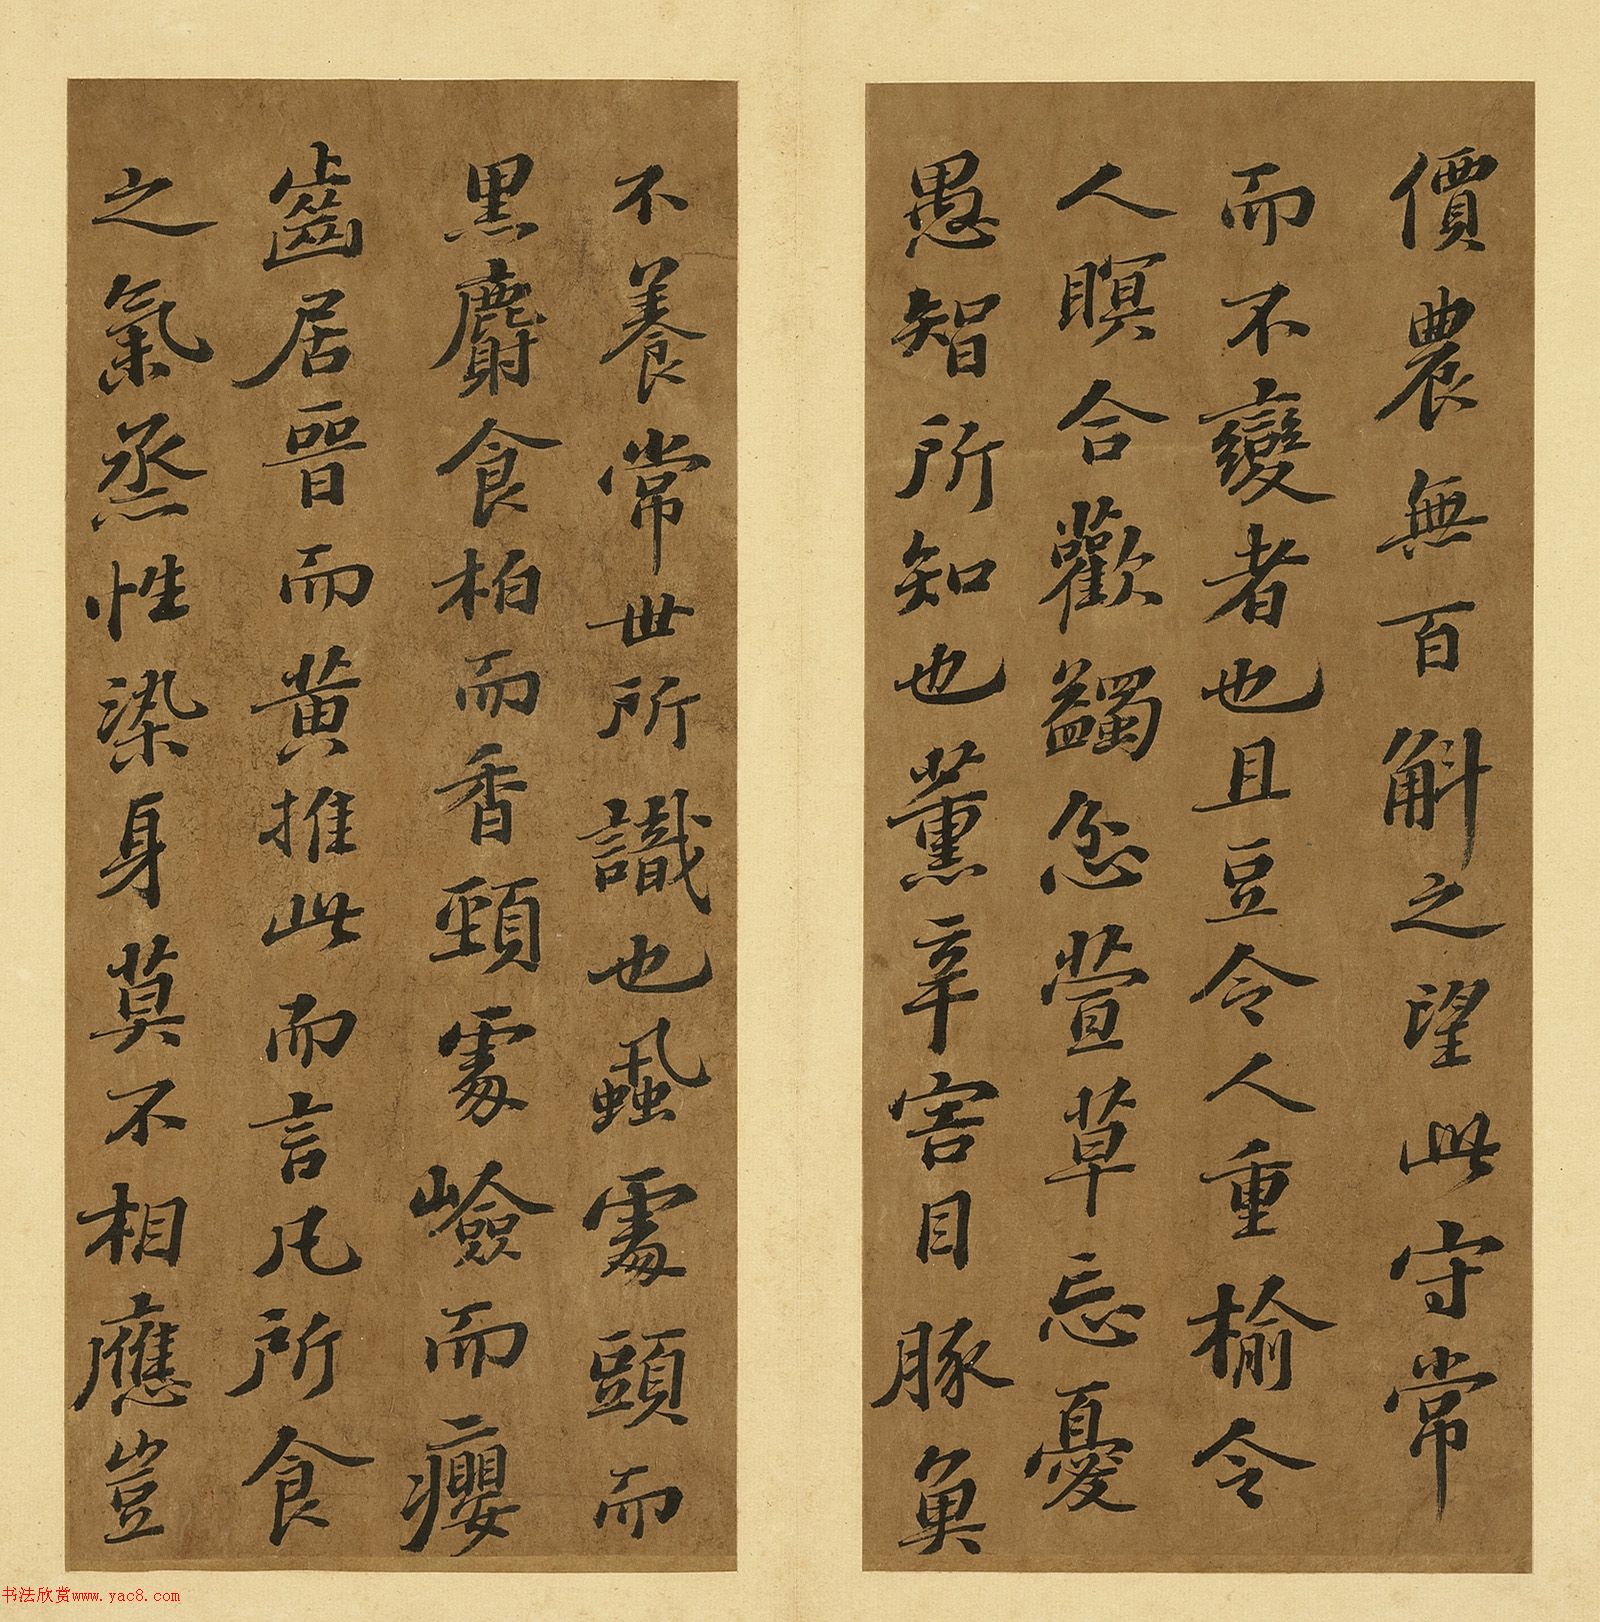 價農無百斛之望此守常
而不變者也且豆令人重榆令
人瞑合歡蠲忿萱草忘憂
愚智所知也薰辛害目豚魚
不養常世所識也蝨處頭而
黑麝食柏而香頸處嶮而癭
齒居晉而黃推此而言凡所食
之氣烝性染身莫不相應豈
书法欣赏www.yac8.com